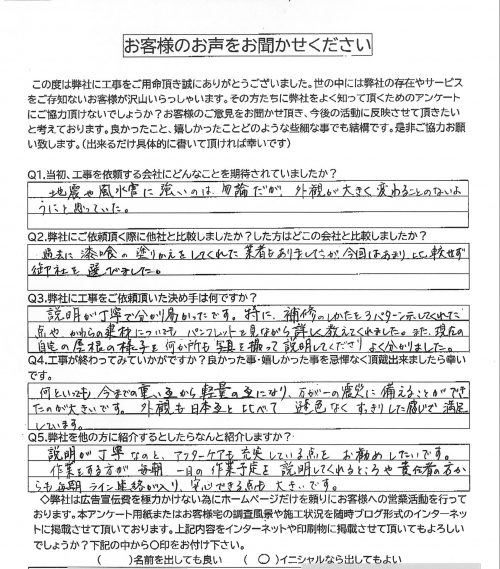 お客様のお声をお聞かせください
この度は弊社に工事をご用命頂き誠にありがとうございました。世の中には弊社の存在やサービス
をご存知ないお客様が沢山いらっしゃいます。その方たちに弊社をよく知って頂くためのアンケート
にご協力頂けないでしょうか？お客様のご意見をお聞かせ頂き、今後の活動に反映させて頂きたい
と考えております。良かったこと、嬉しかったことどのような些細な事でも結構です。是非ご協力お願
い致します。（出来るだけ具体的に書いて頂ければ幸いです）
Q1.当初、工事を依頼する会社にどんなことを期待されていましたか？
地震や風水害に強いのは勿論だが、外観が大きく変わることのないよ
うにと思っていた。
Q2.弊社にご依頼頂く際に他社と比較しましたか？した方はどこの会社と比較しましたか？
過去に漆喰の塗りかえをしてくれた業者もありましたが今回はあまり比較せず
御社を選びました。
Q3.弊社に工事をご依頼頂いた決め手は何ですか？
説明が丁寧で分かり易かったです。特に、補修のしかたを3パターン示してくれた
点や、かわらの建材についてもパンフレットを見ながら詳しく教えてくれました。また、現在の
自宅の屋根の様子を何か所も写真を撮って説明してくださりよく分かりました。
Q4.工事が終わってみていかがですか？良かった事・嬉しかった事を忌憚なく頂戴出来ましたら幸い
です。
何といっても今までの重い瓦から軽量の瓦になり、万が一の震災に備えることができ
たのが大きいです。外観も日本瓦と比べて遜色なくすっきりした感じで満足
しています。
Q5.弊社を他の方に紹介するとしたらなんと紹介しますか？
説明が丁寧なのと、アフターケアも充実している点をお勧めしたいです。
作業をする方が毎朝一日の作業予定を説明してくれるところや責任者の方か
らも毎朝ライン連絡が入り、安心できる点も大きいです。
◇弊社は広告宣伝費を極力かけない為にホームページだけを頼りにお客様への営業活動を行って
おります。本アンケート用紙またはお客様宅の調査風景や施工状況を随時ブログ形式のインターネッ
トに掲載させて頂いております。上記内容をインターネットや印刷物に掲載させて頂いてもよろしい
でしょうか？下記の中から〇印をお付け下さい。
（　　）名前を出しても良い　（〇）イニシャルなら出してもよい